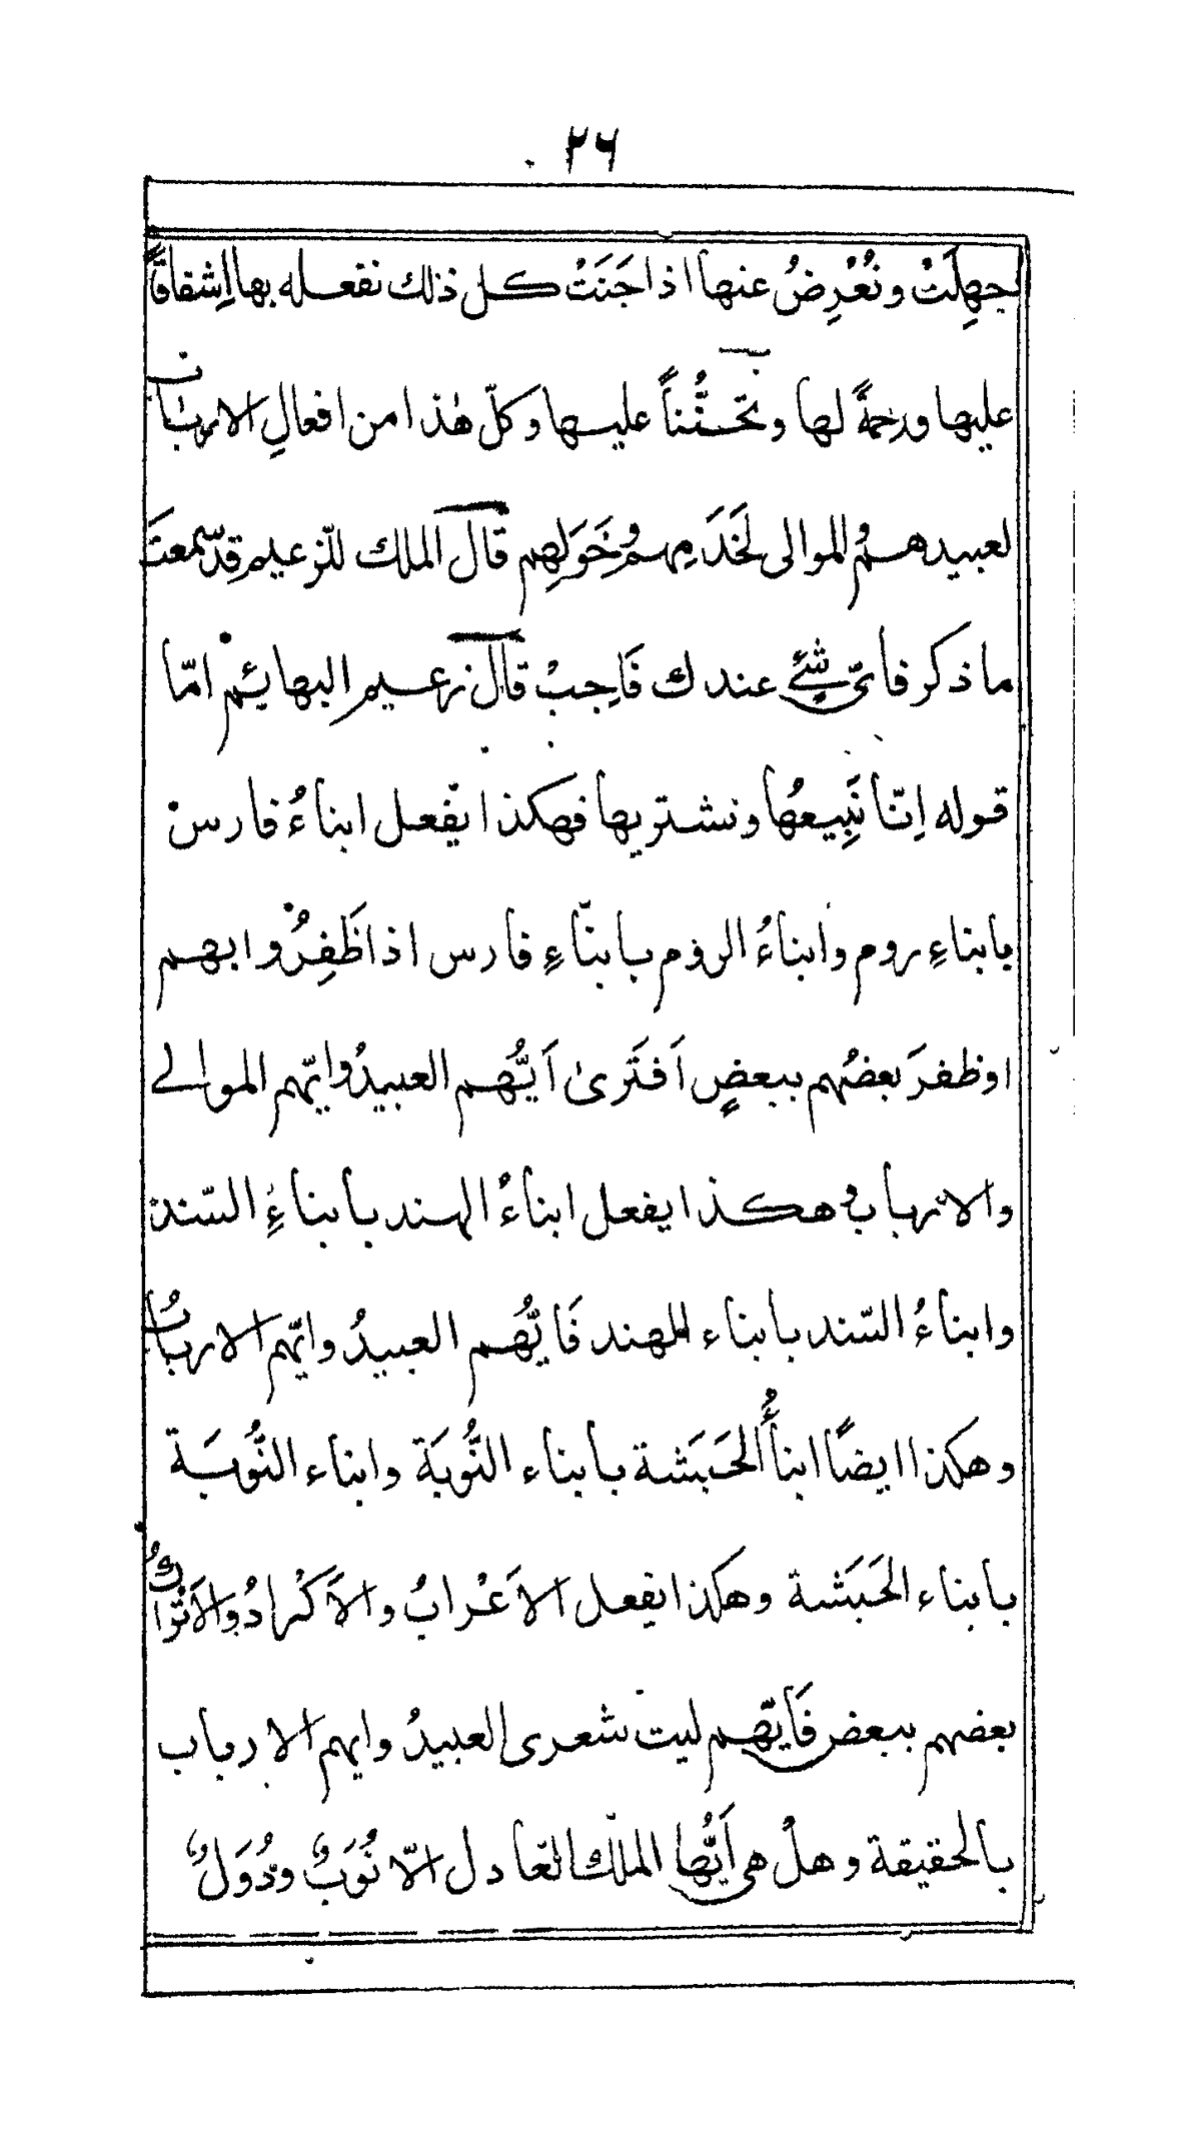 ٢٦
جهِلَتْ ونُعْرِضُ عنها اذا جَنَتْ كل ذلك نفعله بها اِشفاقاً
عليها ورحمةً لها وتحنُّناً عليها وكلّ هٰذا من افعالِ الارباب
لعبيدهمُ والموالى لخَدَمِهمُ وخَوَلِهِم قال الملك للزعيم قد سمعتَ
ما ذكر فاىّ شئٍ عندك فَاَجِبْ قال زعيم البهائم امّا
قوله اِنّا نَبِيعُها ونشتريها فهكذا يفعل ابناءُ فارسْ
بابناءِ روم وابناءُ الروم بابناءِ فارس اذا ظَفِرُوا بهم
او ظفرَ بعضُهم ببعضٍ اَفَتَرىٰ اَيُّهم العبيدُ وايّهم الموالے
والارباب وهكذا يفعل ابناءُ الهند بابناءِ السّند
وابناءُ السّند بابناء الهند فَايُّهم العبيدُ وايّهم الاربابُ
وهكذا ايضًا ابنأُ الحَبَشة بابناء النُّوبَة وابناء النُّوبَة
بابناء الحَبَشة وهكذا يفعل الاَعْرابُ والاَكْرادُ والاَتراكُ
بعضهم ببعض فَايّهم ليت شعرى العبيدُ وايهم الارباب
بالحقيقة وهلْ هى اَيُّها الملك العادل الاّ نُوَبٌ ودُوَلٌ